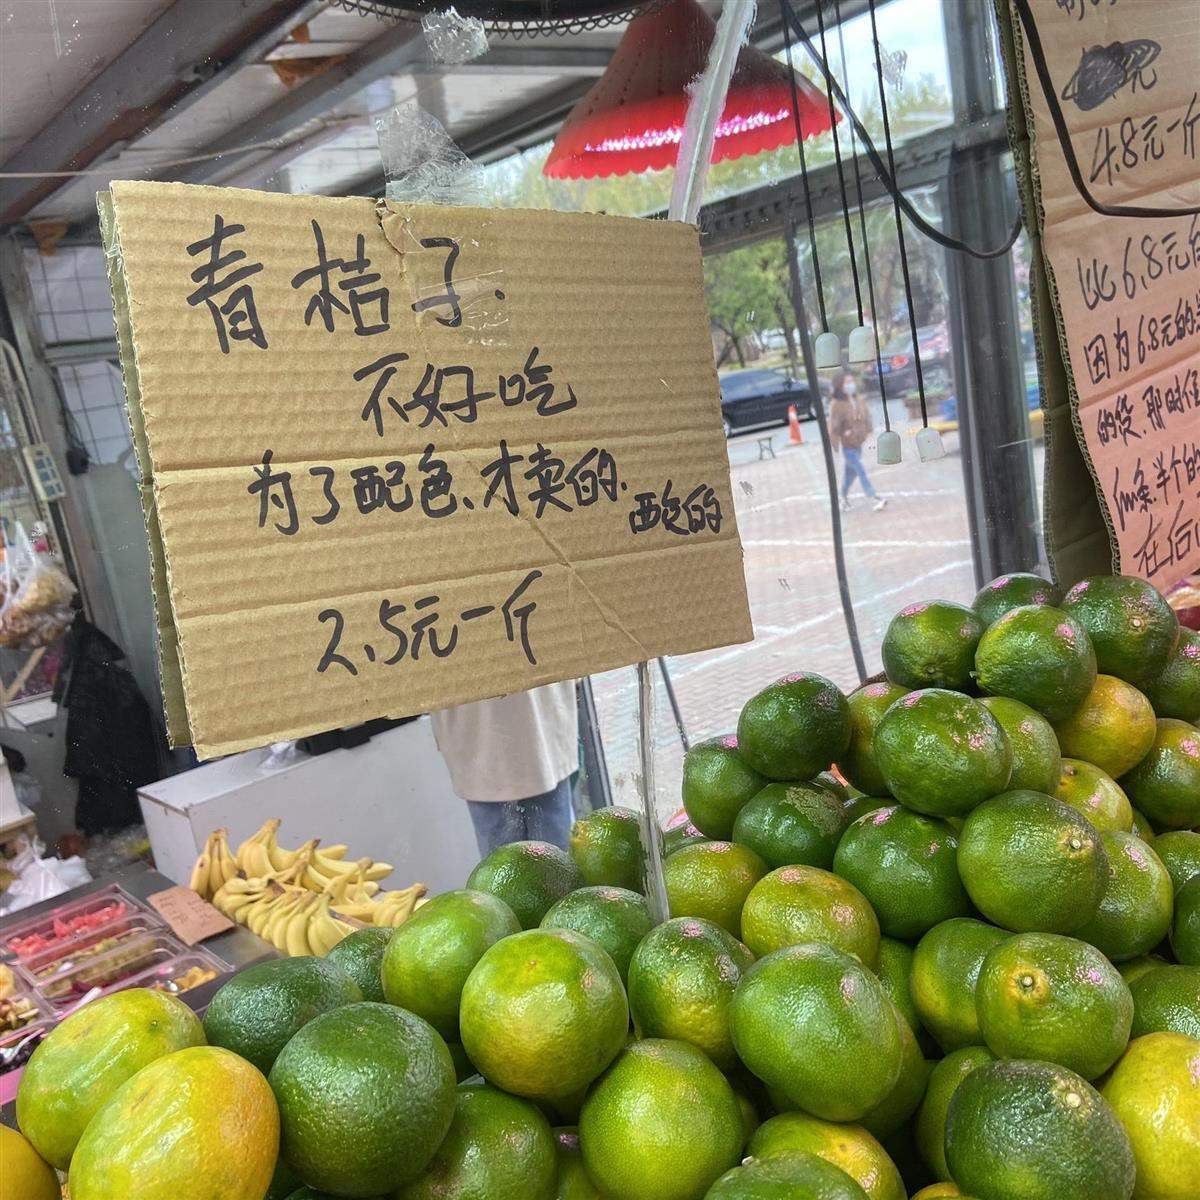 青桔子.
不好吃
为了配色、才卖的.
酸的
2.5元一斤
元
4.8元一斤
比6.8元
因为6.8元的
的货.那时候
在